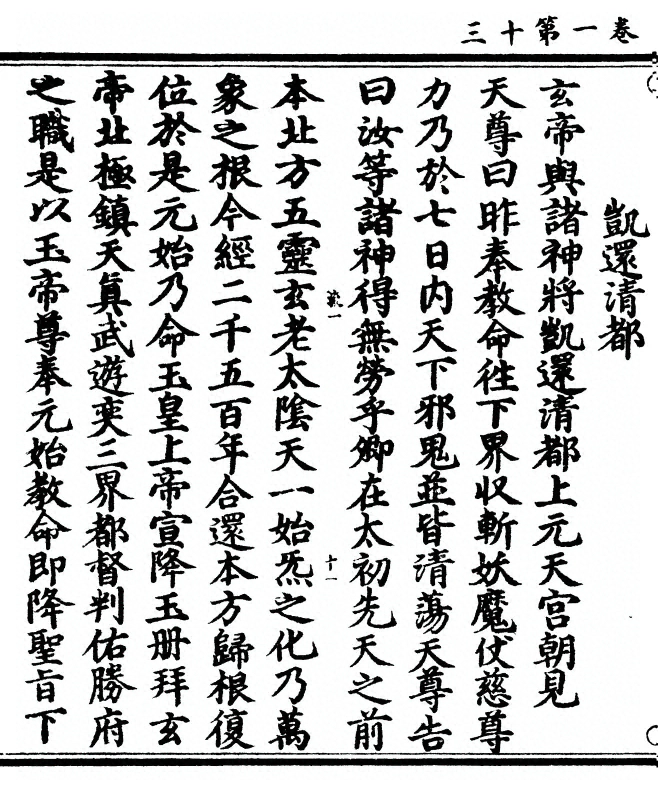 三十第一卷
凱還清都
玄帝與諸神將凱還清都上元天宮朝見
天尊曰昨奉教命徃下界収斬妖魔仗慈尊
力乃於七日内天下邪鬼並皆清蕩天尊告
曰汝等諸神得無勞乎卿在太初先天之前
虞一
十一
本北方五靈玄老太陰天一始炁之化乃萬
象之根今經二千五百年合還本方歸根復
位於是元始乃命玉皇上帝宣降玉册拜玄
帝北極鎮天真武遊奕三界都督判佑勝府
之職是以玉帝尊奉元始教命即降聖旨下